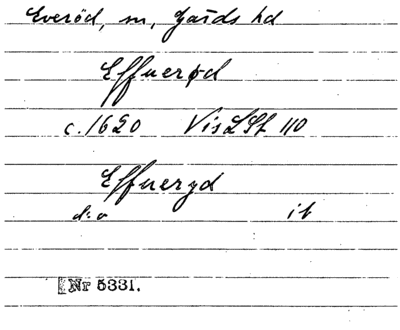 Everöd, sn, Gärds hd
Effuerød
c. 1620 Vis LSt 110
Effueryd
d:o ib
Nr 5331.